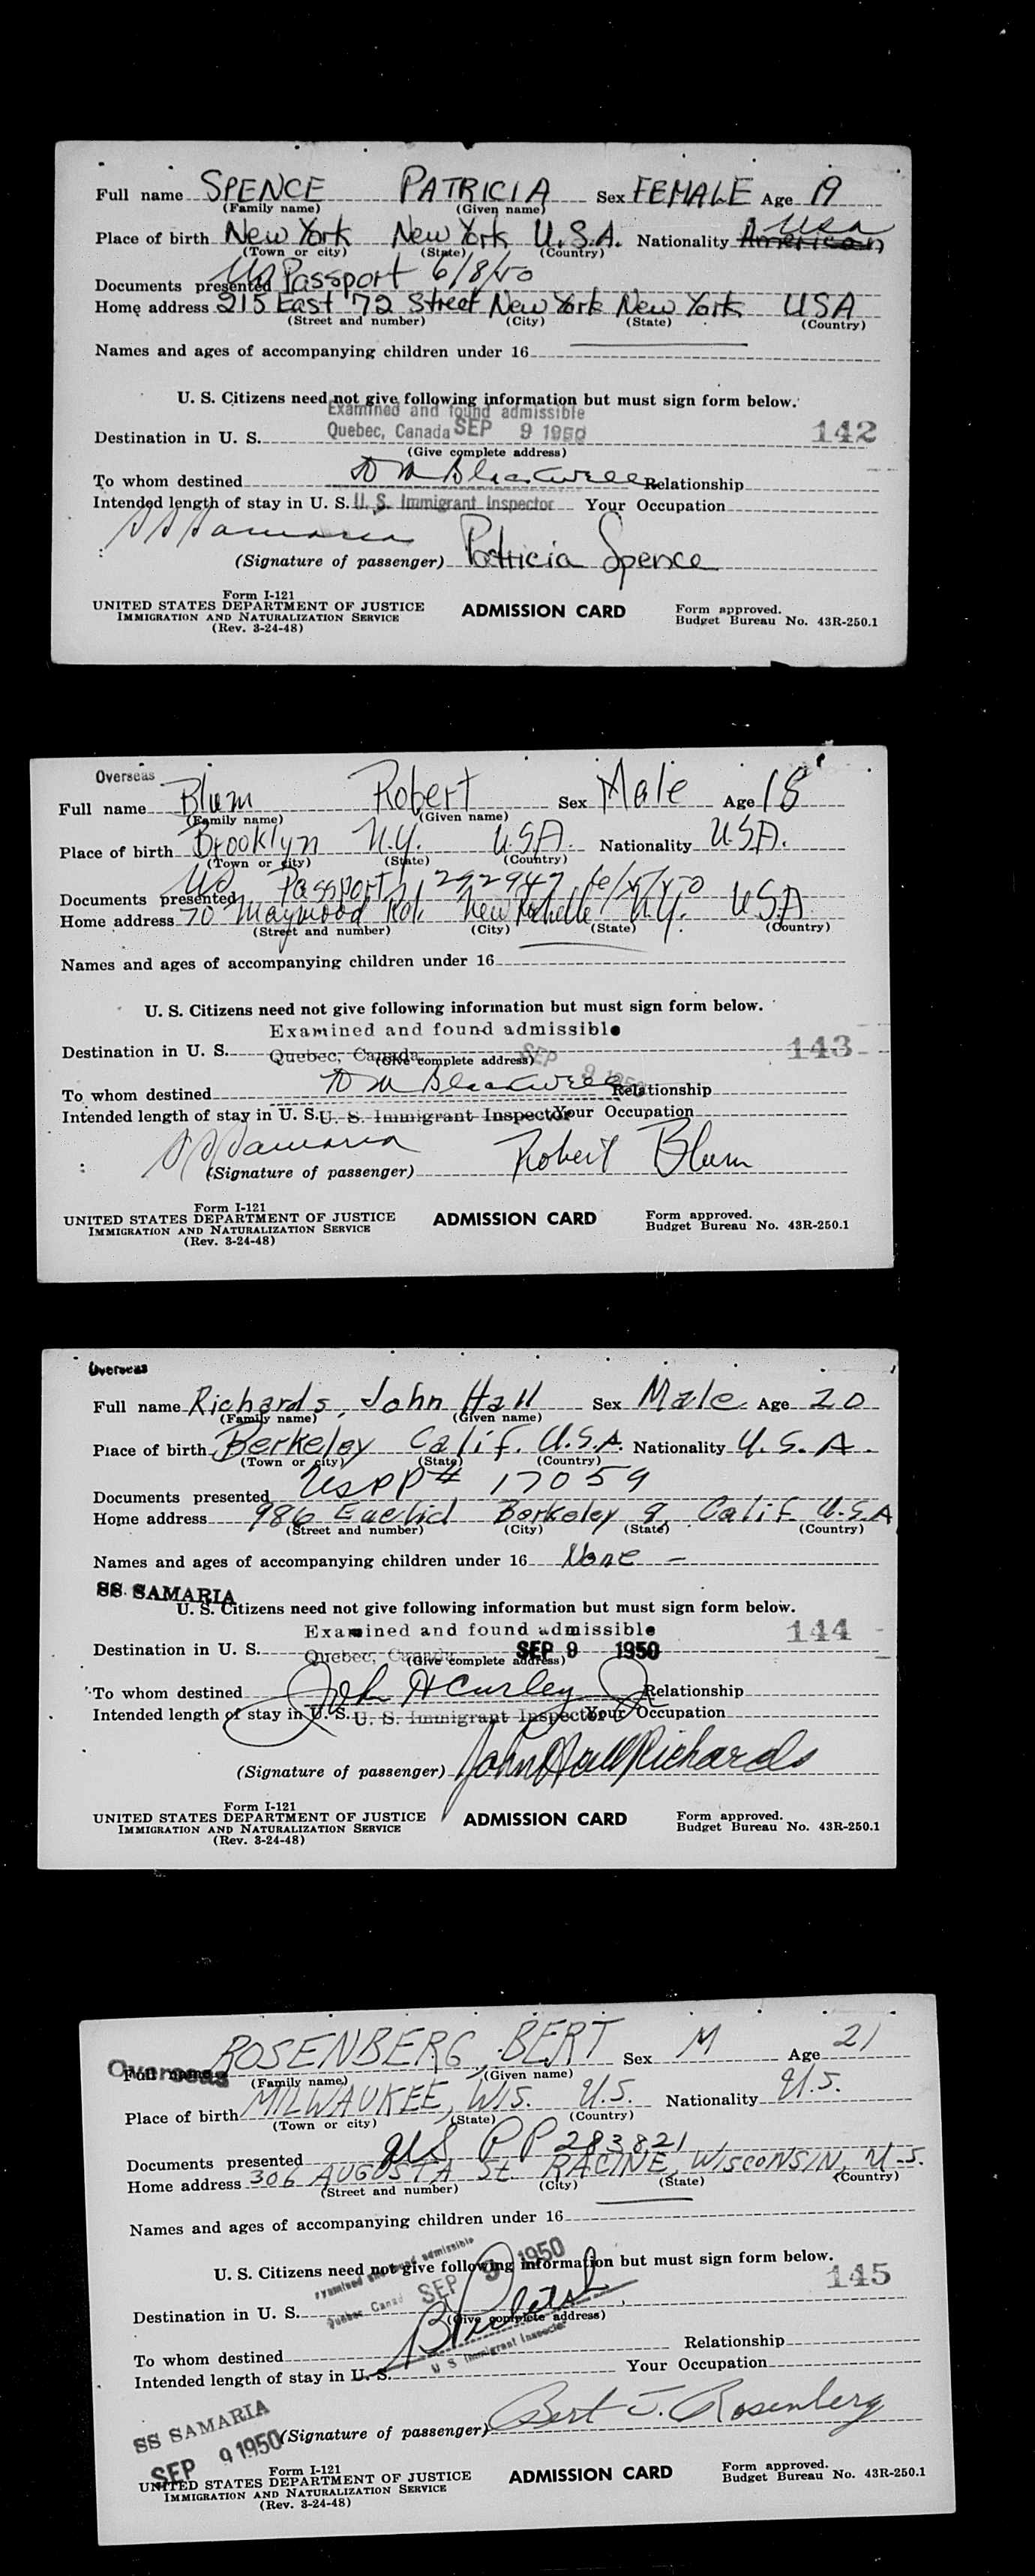 Full name SPENCE PATRICIA Sex FEMALE Age 19
(Family name) (Given name)
Place of birth New York New York U.S.A. Nationality American USA
(Town or city) (State) (Country)
Documents presented US Passport 6/8/50
Home address 215 East 72 Street New York New York USA
(Street and number) (City) (State) (Country)
Names and ages of accompanying children under 16
U. S. Citizens need not give following information but must sign form below.
Examined and found admissible
Destination in U. S. Quebec, Canada SEP 9 1950 142
(Give complete address)
To whom destined D M Blackwell Relationship
Intended length of stay in U. S. U. S. Immigrant Inspector Your Occupation
SS Samaria
(Signature of passenger) Patricia Spence
Form I-121
UNITED STATES DEPARTMENT OF JUSTICE ADMISSION CARD Form approved.
IMMIGRATION AND NATURALIZATION SERVICE Budget Bureau No. 43R-250.1
(Rev. 3-24-48)
Overseas
Full name Blum Robert Sex Male Age 18
(Family name) (Given name)
Place of birth Brooklyn N.Y. U.S.A. Nationality U.S.A.
(Town or city) (State) (Country)
Documents presented US Passport 292947
Home address 70 Maywood Rd. New Rochelle N.Y. USA
(Street and number) (City) (State) (Country)
Names and ages of accompanying children under 16
U. S. Citizens need not give following information but must sign form below.
Examined and found admissible
Destination in U. S. Quebec, Canada SEP 9 1950 143
(Give complete address)
To whom destined D M Blackwell Relationship
Intended length of stay in U. S. U. S. Immigrant Inspector Your Occupation
SS Samaria
(Signature of passenger) Robert Blum
Form I-121
UNITED STATES DEPARTMENT OF JUSTICE ADMISSION CARD Form approved.
IMMIGRATION AND NATURALIZATION SERVICE Budget Bureau No. 43R-250.1
(Rev. 3-24-48)
Overseas
Full name Richards, John Hall Sex Male Age 20
(Family name) (Given name)
Place of birth Berkeley Calif. U.S.A. Nationality U.S.A.
(Town or city) (State) (Country)
Documents presented USPP# 17059
Home address 986 Euclid Berkeley 9, Calif U.S.A
(Street and number) (City) (State) (Country)
Names and ages of accompanying children under 16 None -
SS. SAMARIA
U. S. Citizens need not give following information but must sign form below.
Examined and found admissible 144
Destination in U. S. Quebec, Canada SEP 9 1950
(Give complete address)
To whom destined John H Curley Jr Relationship
Intended length of stay in U. S. U. S. Immigrant Inspector Your Occupation
(Signature of passenger) John Hall Richards
Form I-121
UNITED STATES DEPARTMENT OF JUSTICE ADMISSION CARD Form approved.
IMMIGRATION AND NATURALIZATION SERVICE Budget Bureau No. 43R-250.1
(Rev. 3-24-48)
Overseas
Full name ROSENBERG, BERT Sex M Age 21
(Family name) (Given name)
Place of birth MILWAUKEE, WIS. U.S. Nationality U.S.
(Town or city) (State) (Country)
Documents presented US PP 283821
Home address 306 AUGUSTA St. RACINE, WISCONSIN, U.S.
(Street and number) (City) (State) (Country)
Names and ages of accompanying children under 16
Examined and found admissible
U. S. Citizens need not give following information but must sign form below.
Quebec Canada SEP 9 1950 145
Destination in U. S.
(Give complete address)
U S Immigrant Inspector
To whom destined Relationship
Intended length of stay in U. S. Your Occupation
SS SAMARIA
SEP 9 1950
(Signature of passenger) Bert J. Rosenberg
Form I-121
UNITED STATES DEPARTMENT OF JUSTICE ADMISSION CARD Form approved.
IMMIGRATION AND NATURALIZATION SERVICE Budget Bureau No. 43R-250.1
(Rev. 3-24-48)